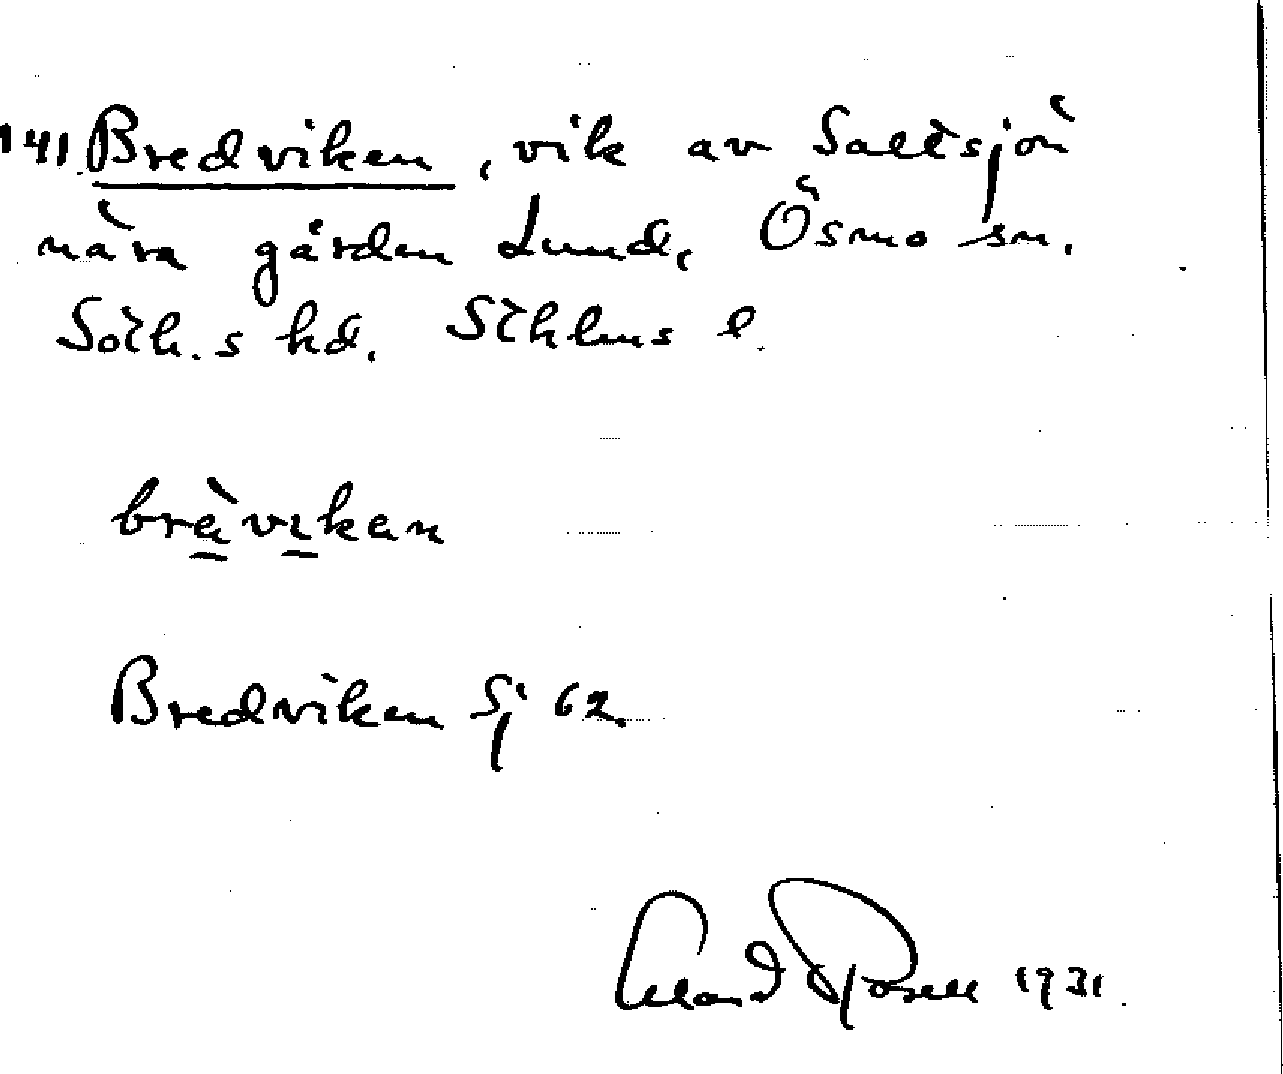 141. Bredviken, vik av Saltsjön
nära gården Lund, Ösmo sn.
Soth.s hd. Sthlms l.
brävikan
Bredviken Sj 62.
Erland Rosell 1931.